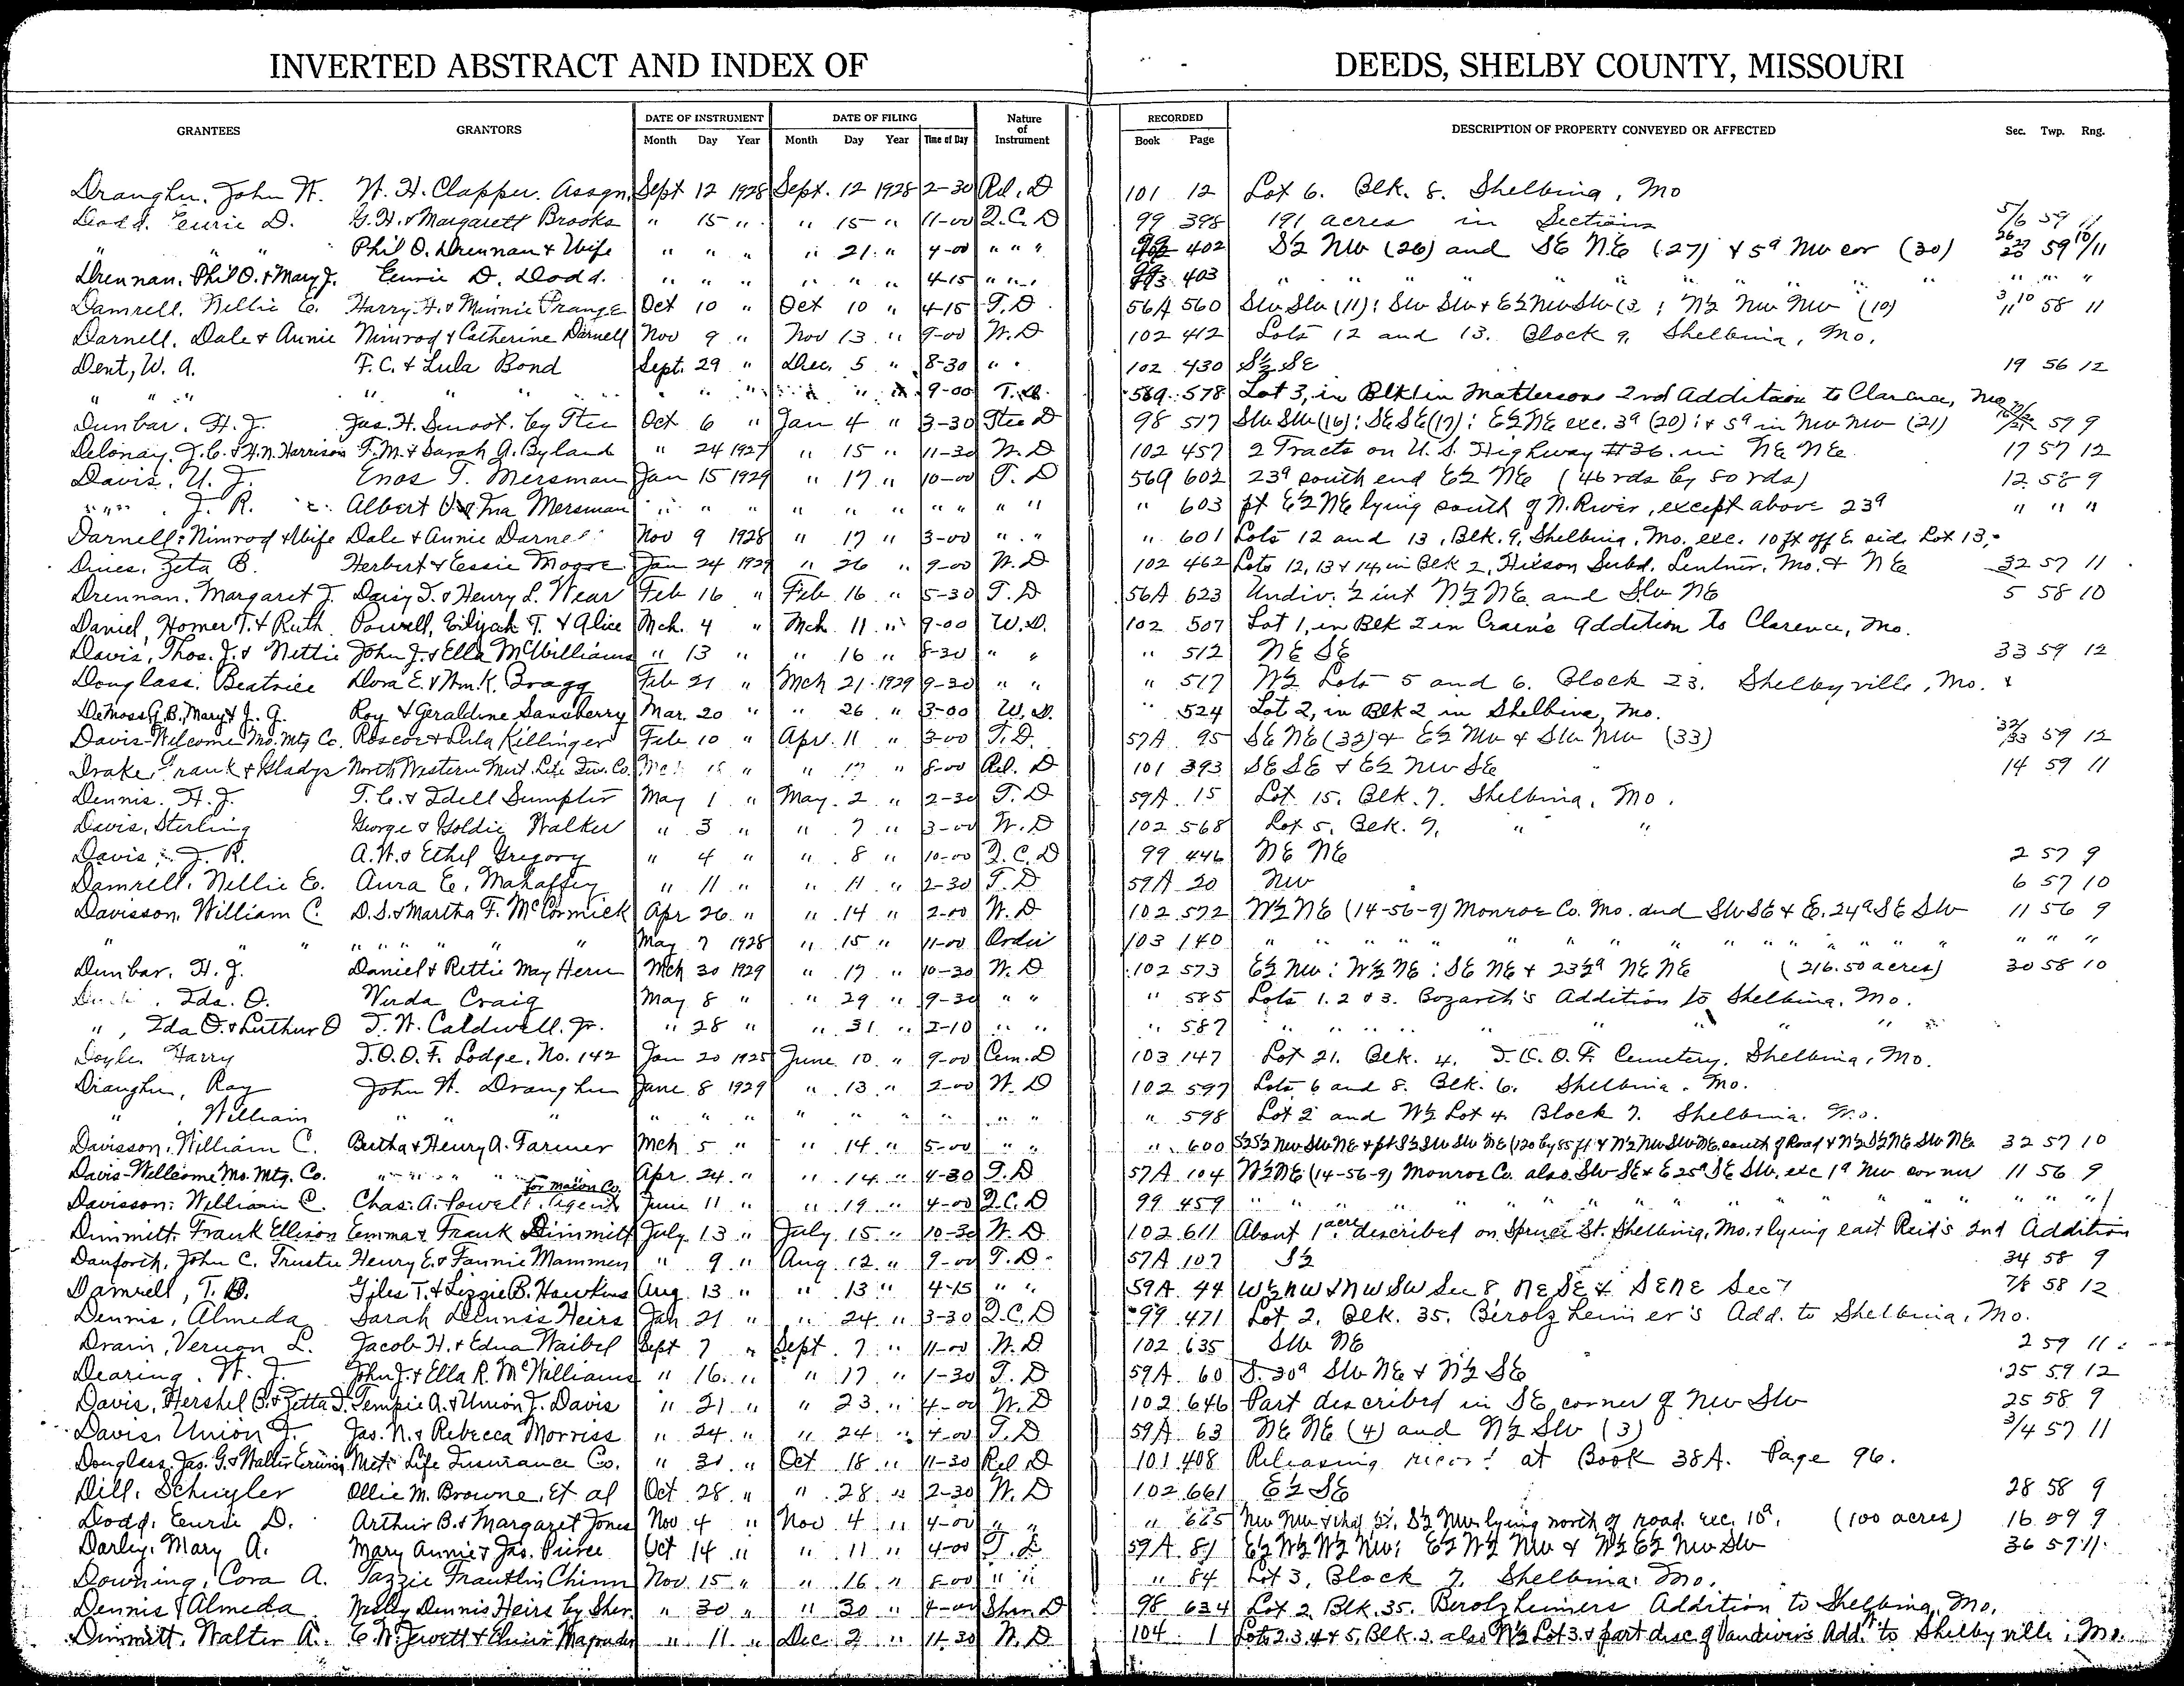 INVERTED ABSTRACT AND INDEX OF DEEDS, SHELBY COUNTY, MISSOURI
GRANTEES GRANTORS DATE OF INSTRUMENT DATE OF FILING Nature of Instrument RECORDED DESCRIPTION OF PROPERTY CONVEYED OR AFFECTED Sec. Twp. Rng.
Month Day Year Month Day Year Time of Day Book Page
Draughn, John W. W. H. Clapper. Assgn. Sept 12 1928 Sept. 12 1928 2-30 Rel. D 101 12 Lot 6. Blk. 8. Shelbina, Mo
Dodd. Eurie D. G. H. & Margarett Brooks " 15 " " 15 " 11-00 Q.C.D 99 398 191 acres in Sections 5/6 59 11
" " " Phil O. Drennan & Wife " " " " 21 " 4-00 " " " 99 402 S½ NW (26) and SE NE (27) & 5a NW cor (30) 59 10/11
Drennan, Phil O. & Mary J. Eurie D. Dodd. " " " " " " 4-15 " " " 99 403 " " " " " " " " " "
Damrell, Nellie E. Harry H. & Minnie Prange Oct 10 " Oct 10 " 4-15 T.D 56A 560 SW SW (11): SW SW & E½ NW SW (3 ; N½ NW NW (10) 3,10 11 58 11
Darnell, Dale & Annie Nimrod & Catherine Darnell Nov 9 " Nov 13 " 9-00 W.D 102 412 Lots 12 and 13. Block 9, Shelbina, Mo.
Dent, W. A. F. C. & Lula Bond Sept. 29 " Dec. 5 " 8-30 " " 102 430 S½ SE 19 56 12
" " " " " " " " " " " " " 9-00 T.D. 56A 578 Lot 3, in Blk in Mattersons 2nd Addition to Clarence, Mo
Dunbar, H. J. Jas. H. Smoot. by Stee Oct 6 " Jan 4 " 3-30 Stee D 98 517 SW SW (16): SE SE (17): E½ NE exc. 3a (20): & 5a in NW NW (21) 59 9
Delonay, J. C. & H. N. Harrison F. M. & Sarah A. Byland " 24 1927 " 15 " 11-30 W.D 102 457 2 Tracts on U.S. Highway #36. in NE NE 17 57 12
Davis, U. J. Enos T. Mersman Jan 15 1929 " 17 " 10-00 T.D 56A 602 23a south end E½ NE (46 rds by 80 rds) 12 58 9
" J. R. Albert U & Ina Mersman " " " " " " " " " " " 603 pt E½ NE lying south of N. River, except above 23a " " "
Darnell, Nimrod & Wife Dale & Annie Darnell Nov 9 1928 " 17 " 3-00 " " " 601 Lots 12 and 13, Blk. 9, Shelbina, Mo. exc. 10 ft off E. side Lot 13,
Dines, Zeta B. Herbert & Essie Moore Jan 24 1929 " 26 " 9-00 W.D 102 462 Lots 12, 13 & 14, in Blk 2, Hixson Subd. Lentner, Mo. & NE 32 57 11
Drennan, Margaret J. Daisy T. & Henry L. Wear Feb 16 " Feb 16 " 5-30 T.D 56A 623 Undiv. ½ int N½ NE and SW NE 5 58 10
Daniel, Homer T. & Ruth Powell, Elijah T. & Alice Mch. 4 " Mch 11 " 9-00 W.D. 102 507 Lot 1, in Blk 2 in Crain's Addition to Clarence, Mo.
Davis, Thos. J. & Nettie John J. & Ella McWilliams " 13 " " 16 " 8-30 " " " 512 NE SE 33 59 12
Douglass. Beatrice Dora E. & Wm. K. Bragg Feb 21 " Mch 21 1929 9-30 " " " 517 W½ Lots 5 and 6. Block 23. Shelbyville, Mo. &
DeMoss G. B., Mary & J. G. Roy & Geraldine Sansberry Mar. 20 " " 26 " 3-00 W.D. " 524 Lot 2, in Blk 2 in Shelbina, Mo.
Davis-Welcome Mo. Mtg Co. Roscoe & Lula Killinger Feb 10 " Apr. 11 " 3-00 T.D. 57A 95 SE NE (32) & E½ NW & SW NW (33) 32/33 59 12
Drake, Frank & Gladys North Western Mut. Life Ins. Co. " 17 " 8-00 Rel. D 101 393 SE SE & E½ NW SE 14 59 11
Dennis. H. J. T. C. & Idell Sumpter May 1 " May 2 " 2-30 T.D 59A 15 Lot 15. Blk. 7. Shelbina, Mo.
Davis, Sterling George & Goldie Walker " 3 " " 7 " 3-00 W.D 102 568 Lot 5. Blk. 9, " "
Davis, J. R. A. W. & Ethel Gregory " 4 " " 8 " 10-00 Q.C.D 99 446 NE NE 2 57 9
Damrell, Nellie E. Aura E. Mahaffey " 11 " " 11 " 2-30 T.D 59A 20 NW 6 57 10
Davisson, William C. D. S. & Martha F. McCormick Apr 26 " " 14 " 2-00 W.D 102 572 W½ NE (14-56-9) Monroe Co. Mo. and SW SE & E. 24a SE SW 11 56 9
" " " " " " " " " May 7 1928 " 15 " 11-00 Order 103 140 " " " " " " " " " " " " " " "
Dunbar, H. J. Daniel & Rettie May Hern Mch 30 1929 " 17 " 10-30 W.D 102 573 E½ NW: W½ NE: SE NE & 23½a NE NE (216.50 acres) 30 58 10
Ida. O. Verda Craig May 8 " " 29 " 9-30 " " " 585 Lots 1. 2 & 3. Bozarth's Addition to Shelbina, Mo.
", Ida O. & Luthur O J. W. Caldwell. Jr. " 28 " " 31 " 2-10 " " " 587 " " " " " " " " "
Doyle, Harry I.O.O.F. Lodge, No. 142 Jan 20 1925 June 10 " 9-00 Cem. D 103 147 Lot 21. Blk. 4. I.O.O.F. Cemetery, Shelbina, Mo.
Draughn, Ray John W. Draughn June 8 1929 " 13 " 2-00 W.D 102 597 Lots 6 and 8. Blk. 6. Shelbina. Mo.
", William " " " " " " " " " " " " " 598 Lot 2 and W½ Lot 4. Block 7. Shelbina. Mo.
Davisson, William C. Bertha & Henry A. Farmer Mch 5 " " 14 " 5-00 " " " 600 S½ S½ NW SW NE & pt S½ SW SW NE (120 by 85 ft & N½ NW SW NE south of Road & N½ S½ NE SW NE 32 57 10
Davis-Wellcome Mo. Mtg. Co. " " " " Apr. 24 " " 14 " 4-30 T.D 57A 104 W½ NE (14-56-9) Monroe Co. also SW SE & E 25a SE SW, exc 1a NW corner 11 56 9
Davisson, William C. Chas. A. Powell, Agent for Macon Co. June 11 " " 19 " 4-00 Q.C.D 99 459 " " " " " " " " " " " " "
Dimmitt, Frank Ellison Emma & Frank Dimmitt July 13 " July 15 " 10-30 W.D 102 611 About 1 acre described on Spruce St. Shelbina, Mo. & lying east Reid's 2nd Addition
Danforth, John C. Trustee Henry E. & Fannie Mammen " 9 " Aug 12 " 9-00 T.D 57A 107 S½ 34 58 9
Damrell, T. B. Giles T. & Lizzie B. Hawkins Aug 13 " " 13 " 4-15 " " 59A 44 W½ NW & NW SW Sec 8, NE SE & SE NE Sec 7 7/8 58 12
Dennis, Almeda Sarah Dennis Heirs Jan 21 " " 24 " 3-30 Q.C.D 99 471 Lot 2. Blk. 35. Berolzheimer's Add. to Shelbina, Mo.
Drain, Vernon L. Jacob H. & Edna Waibel Sept 7 " Sept. 7 " 11-00 W.D 102 635 SW NE 2 59 11
Dearing, W. J. John J. & Ella R. McWilliams " 16 " " 17 " 1-30 T.D 59A 60 S. 30a SW NE & N½ SE 25 59 12
Davis, Hershel B. & Zetta I. Tempie A. & Union J. Davis " 21 " " 23 " 4-00 W.D 102 646 Part described in SE corner of NW SW 25 58 9
Davis, Union J. Jas. N. & Rebecca Morriss " 24 " " 24 " 4-00 T.D 59A 63 NE NE (4) and N½ SW (3) 3/4 57 11
Douglass, Jas. G. & Walter Met. Life Insurance Co. " 31 " Oct 18 " 11-30 Rel D 101 408 Releasing record at Book 38A. Page 96.
Dill, Schuyler Ollie M. Browne, Et al Oct 28 " " 28 " 2-30 W.D 102 661 E½ SE 28 58 9
Dodd, Eurie D. Arthur B. & Margaret Jones Nov 4 " Nov 4 " 4-00 " " " 665 NW NW & S½ NW lying north of road. exc. 10a. (100 acres) 16 59 9
Darley, Mary A. Mary Annie & Jas. Pierce Oct 14 " " 11 " 4-00 T.D 59A 81 E½ W½ W½ NW; E½ W½ NW & W½ E½ NW SW 36 57 11
Downing, Cora A. Tazzie Franklin Chinn Nov 15 " " 16 " 8-00 " " " 84 Lot 3, Block 7. Shelbina. Mo.
Dennis, Almeda Wesley Dennis Heirs by Sher. " 30 " " 30 " 4-00 Sher. D 98 634 Lot 2, Blk. 35. Berolzheimers Addition to Shelbina, Mo.
Dimmitt, Walter A. C. W. Jewett & Elmir Magruder " 11 " Dec 2 " 11-30 W.D 104 1 Lots 2. 3, 4 & 5, Blk. 2. also W½ Lot 3. & part desc. of Vandiver's Add. to Shelbyville, Mo.